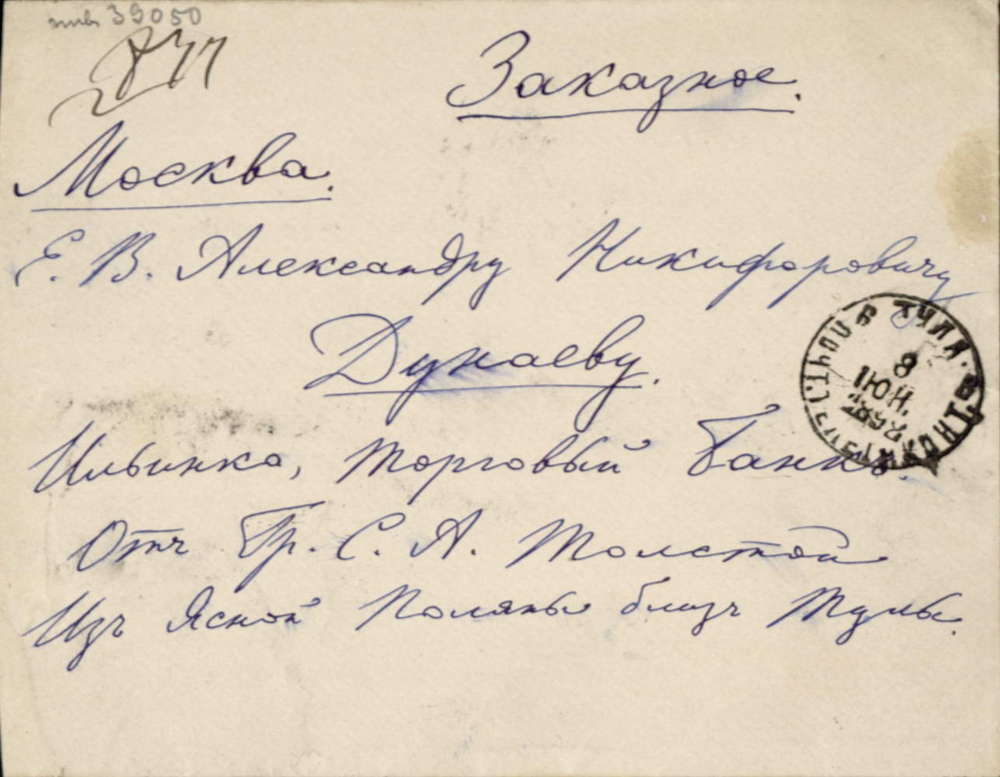 39050
Заказное.
Москва.
Е. В. Александру Никифоровичу
Дунаеву.
Ильинка, Торговый Банкъ.
Отъ Гр. С. А. Толстой
Изъ Ясной Поляны близъ Тулы.
ТУЛА
8
ІЮН.
1898